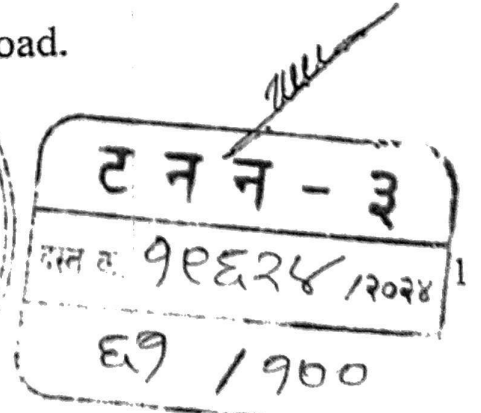 oad.
ट न न - ३
दस्त क्र. १९६२४ /२०२४ 1
६१ / १००